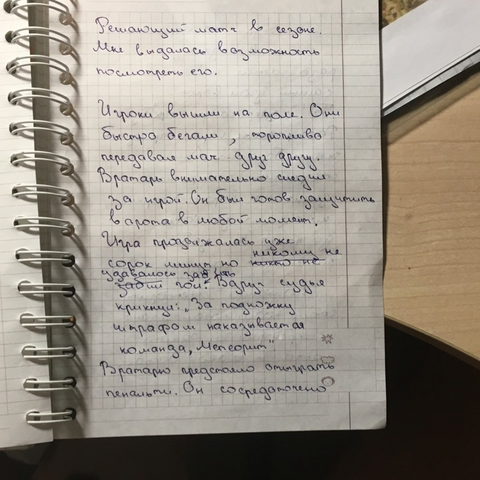 Решающий матч в сезоне.
Мне выдалась возможность
посмотреть его.
Игроки вышли на поле. Они
быстро бегали, торопливо
передавая мяч друг другу.
Вратарь внимательно следил
за игрой. Он был готов защитить
ворота в любой момент.
Игра продолжалась уже
сорок минут, но никому не
удавалось забить
гол. Вдруг судья
крикнул: „За подножку
штрафом наказывается
команда „Метеорит"
Вратарю предстояло отыграть
пенальти. Он сосредоточено